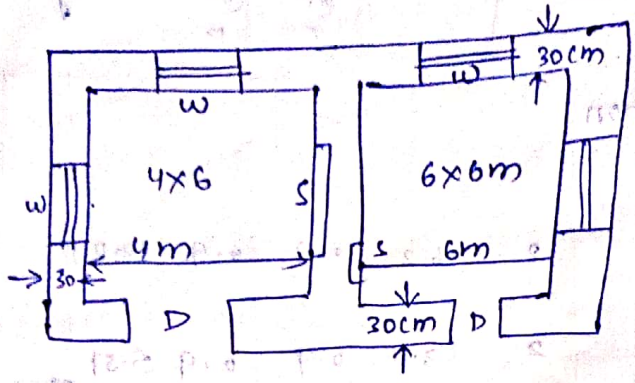 W
W
30cm
W
4×6
S
6×6m
4m
S
6m
30
D
30cm
D